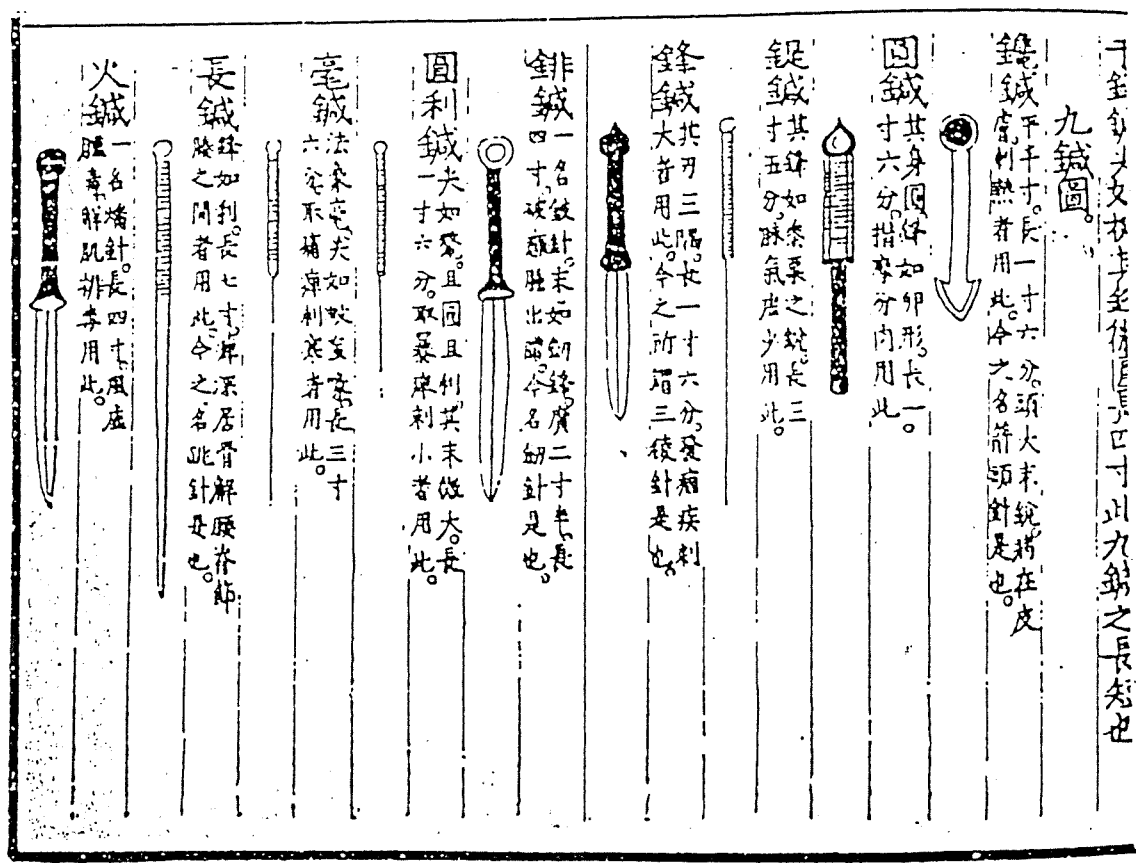 九鍼之長短也
九鍼圖。
鑱鍼平半寸。長一寸六分。頭大末銳。病在皮
膚。刺熱者用此。今之名箭頭針是也。
圓鍼其身圓。鋒如卵形。長一
寸六分。揩摩分肉用此。
鍉鍼其鋒如黍粟之銳。長三
寸五分。脉氣虛少用此。
鋒鍼其刃三隅。長一寸六分。發痼疾刺
大者用此。今之所謂三稜針是也。
鈹鍼一名鈹針。末如劍鋒。廣二寸半。長
四寸。破癰腫出膿。今名劒針是也。
圓利鍼尖如氂。且圓且利。其末微大。長
一寸六分。取暴痺刺小者用此。
毫鍼法象毫。尖如蚊虻喙。長三寸
六分。取痛痺刺寒者用此。
長鍼鋒如利。長七寸。痺深居骨解腰脊節
腠之間者用此。今之名跳針是也。
火鍼一名燔針。長四寸。風虛
腫毒。解肌排毒用此。